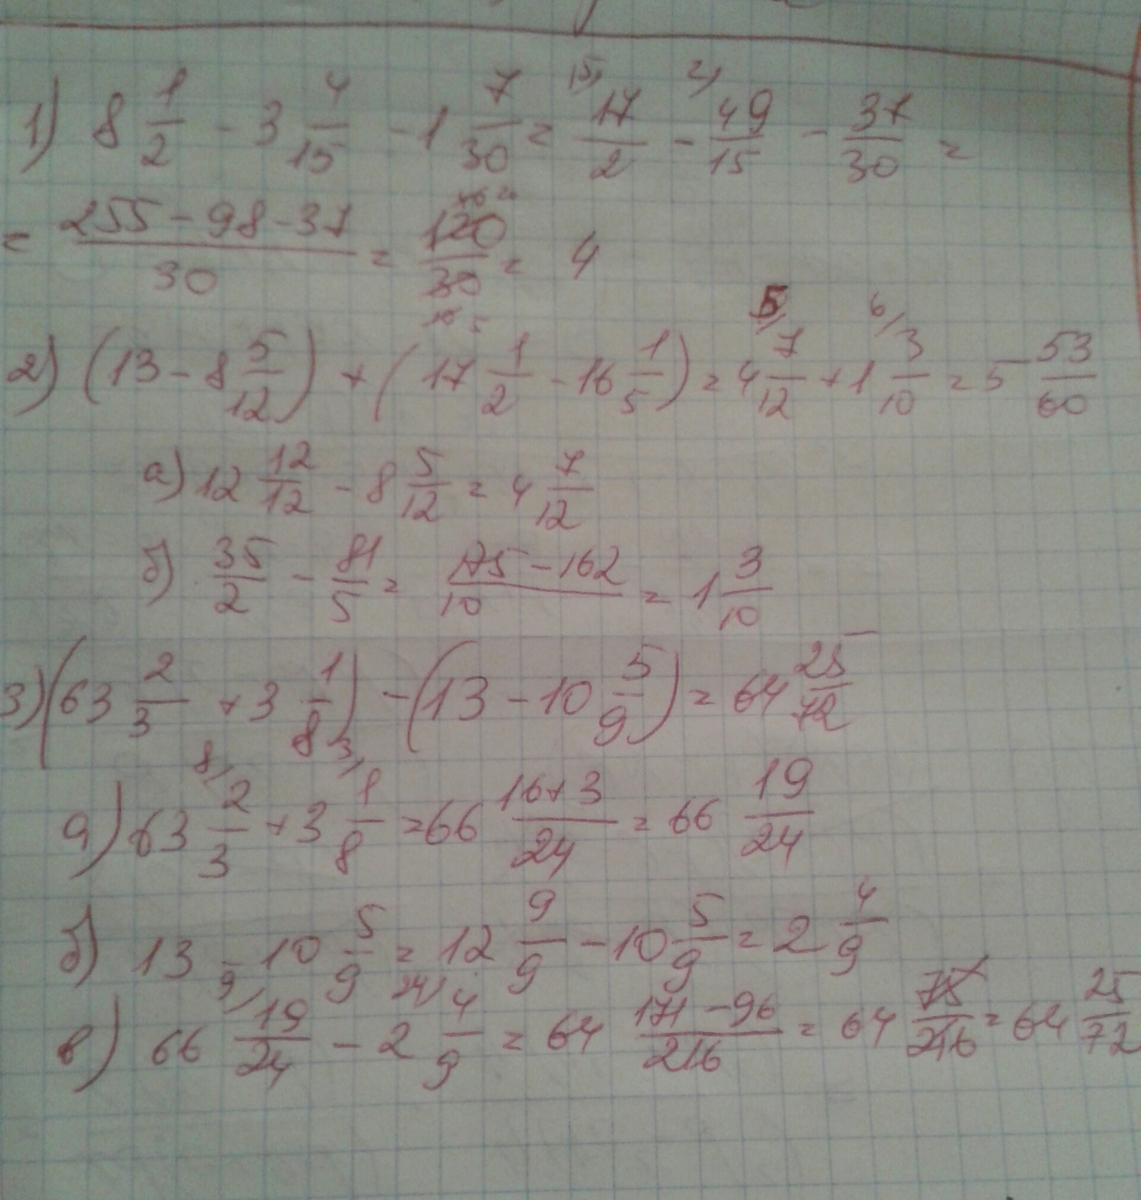 1) 8 1/2 - 3 4/15 - 1 7/30 = 17/2 - 49/15 - 37/30 =
= (255 - 98 - 37)/30 = 120/30 = 4
2) (13 - 8 5/12) + (17 1/2 - 16 1/5) = 4 7/12 + 1 3/10 = 5 53/60
а) 12 12/12 - 8 5/12 = 4 7/12
б) 35/2 - 81/5 = (175 - 162)/10 = 1 3/10
3) (63 2/3 + 3 1/8) - (13 - 10 5/9) = 64 25/72
а) 63 2/3 + 3 1/8 = 66 (16+3)/24 = 66 19/24
б) 13 - 10 5/9 = 12 9/9 - 10 5/9 = 2 4/9
в) 66 19/24 - 2 4/9 = 64 (171 - 96)/216 = 64 75/216 = 64 25/72